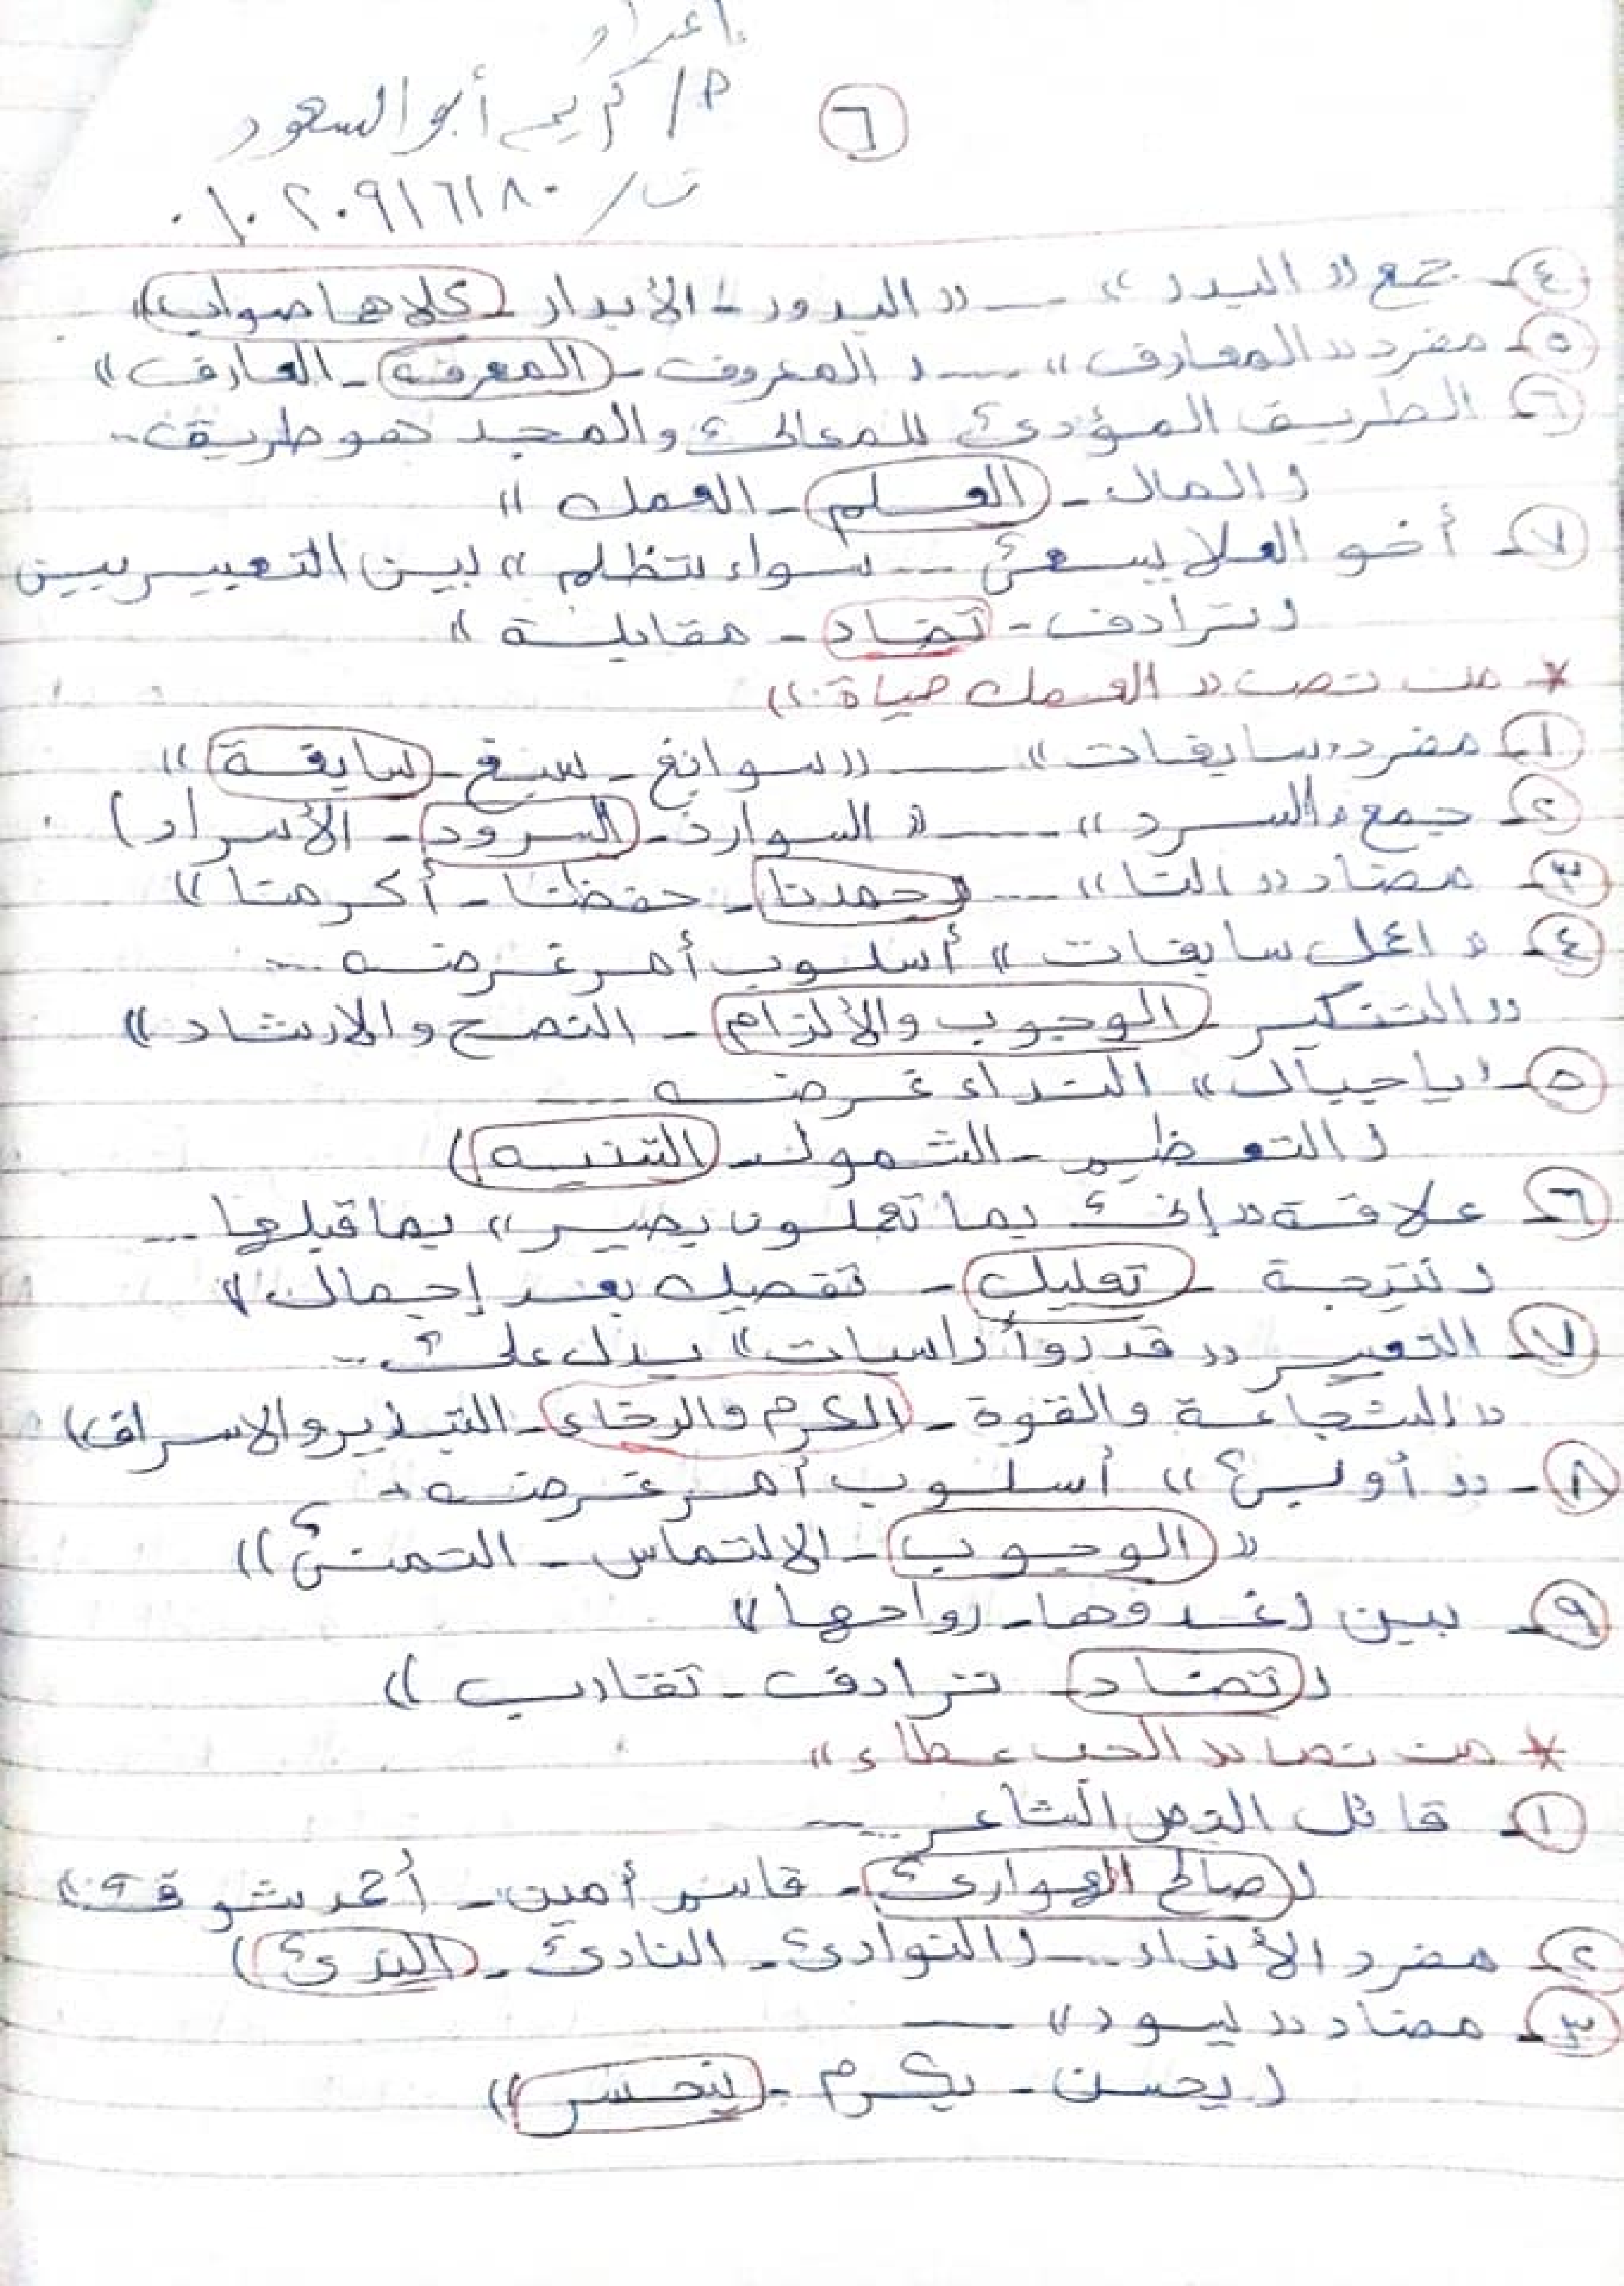 إعداد
م/ كريم أبو السعود
٦
ت/ ٠١٠٢٠٩١٦١٨٠
٤- جمع «البدر» ... «البدور - الأبدار - كلاهما صواب»
٥- مفرد «المعارف» ... «المعروف - المعرفة - العارف»
٦- الطريق المؤدى للمعالى والمجد هو طريق ..
(المال - العلم - العمل»
٧- أخو العلا يسعى ... سواء تظلم» بين التعبيرين
(ترادف - تضاد - مقابلة»
* من نص «العمل حياة»
١- مفرد «سابغات» ... «سوابغ - سبغ - سابغة»
٢- جمع «السرد» ... «السوارد - السرود - الأسراد)
٣- مضاد «ألنا» ... «جمدنا - حفظنا - أكرمنا»
٤- «اعمل سابغات» أسلوب أمر غرضه ...
«التذكير - الوجوب والألزام - النصح والارشاد»
٥- «يا جبال» النداء غرضه ...
(التعظيم - الشمول - التنبيه)
٦- علاقة «إنى بما تعملون بصير» بما قبلها ...
(نتيجة - تعليل - تفصيل بعد إجمال»
٧- التعبير «قدور راسيات» يدل على ...
«الشجاعة والقوة - الكرم والرخاء - التبذير والاسراف)
٨- «أوبى» أسلوب أمر غرضه ..
«الوجوب - الالتماس - التمنى»
٩- بين (غدوها - رواحها»
(تضاد - ترادف - تقارب»
* من نص «الحب عطاء»
١- قائل النص الشاعر ...
(صالح الهوارى - قاسم أمين - أحمد شوقى»
٢- مفرد الأنداء ... (النوادى - النادى - الندى)
٣- مضاد «يسود» ...
(يحسن - يكرم - ينحسر»